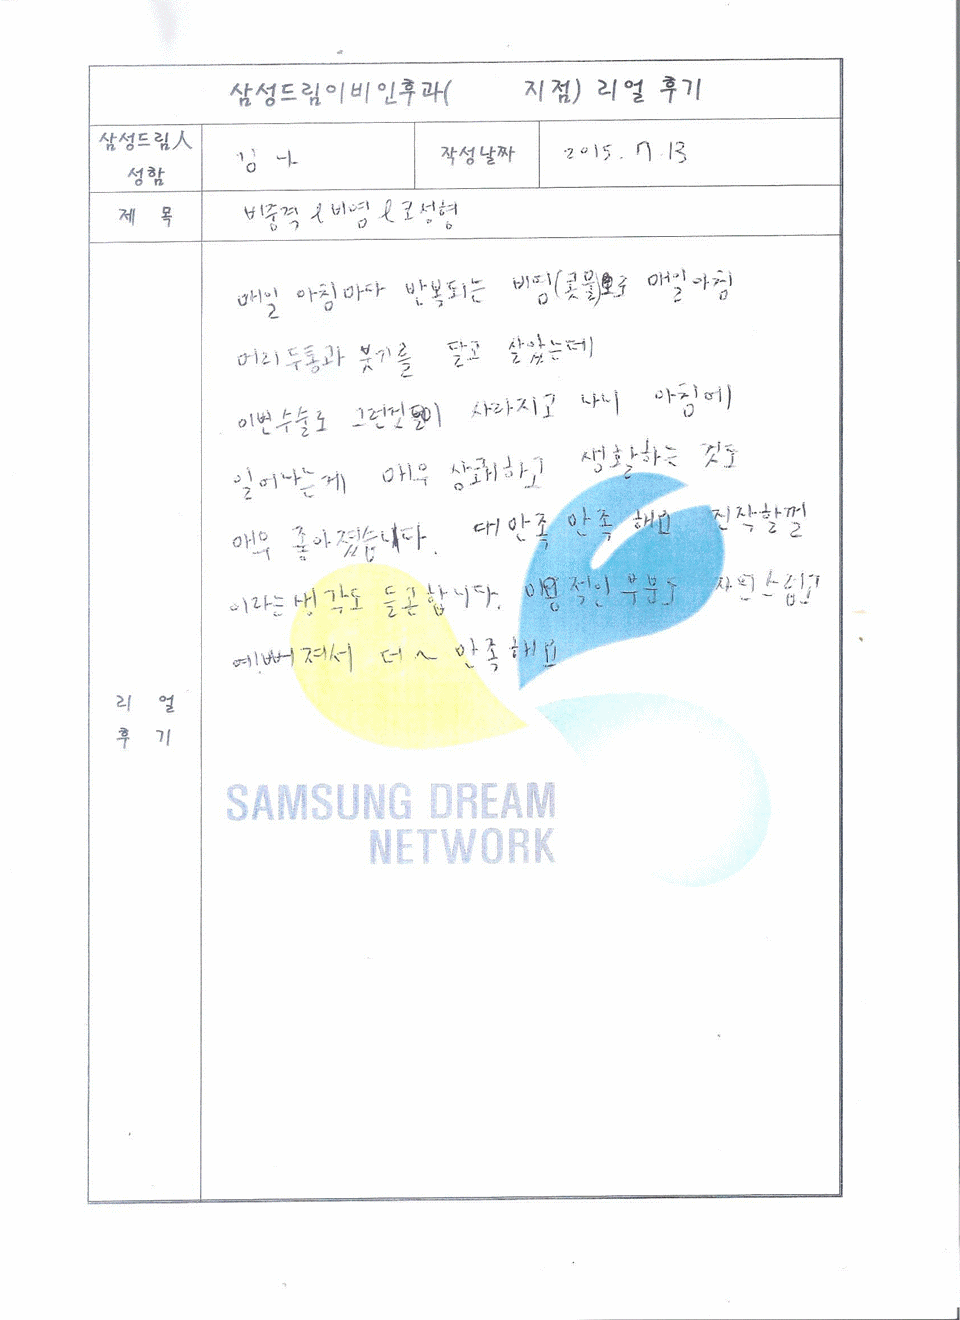 삼성드림이비인후과( 지점) 리얼 후기
삼성드림人 성함
김 나
작성날짜
2015. 7. 13
제 목
비중격 & 비염 & 코성형
리 얼
후 기
매일 아침마다 반복되는 비염(콧물)으로 매일아침
머리두통과 붓기를 달고 살았는데
이번수술로 그런것들이 사라지고 나니 아침에
일어나는게 매우 상쾌하고 생활하는 것도
매우 좋아졌습니다. 대만족 만족 해요 진작할껄
이라는 생각도 들곤합니다. 미용적인 부분도 자연스럽고
예뻐져서 더~ 만족해요
SAMSUNG DREAM
NETWORK